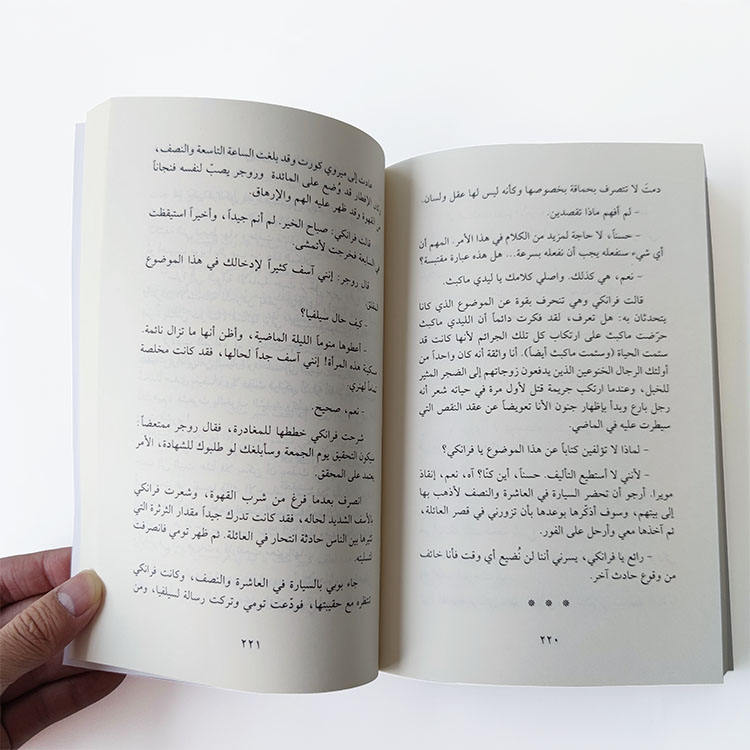 دمتَ لا تتصرف بحماقة بخصوصها وكأنه ليس لها عقل ولسان.
- لم أفهم ماذا تقصدين.
- حسناً، لا حاجة لمزيد من الكلام في هذا الأمر. المهم أن
أي شيء سنفعله يجب أن نفعله بسرعة... هل هذه عبارة مقتبسة؟
- نعم، هي كذلك. واصلي كلامك يا ليدي ماكبث.
قالت فرانكي وهي تنحرف بقوة عن الموضوع الذي كانا
يتحدثان به: هل تعرف، لقد فكرت دائماً أن الليدي ماكبث
حرّضت ماكبث على ارتكاب كل تلك الجرائم لأنها كانت قد
سئمت الحياة (وسئمت ماكبث أيضاً). أنا واثقة أنه كان واحداً من
أولئك الرجال الخنوعين الذين يدفعون زوجاتهم إلى الضجر المثير
للخبل، وعندما ارتكب جريمة قتل لأول مرة في حياته شعر أنه
رجل بارع وبدأ بإظهار جنون الأنا تعويضاً عن عقد النقص التي
سيطرت عليه في الماضي.
- لماذا لا تؤلفين كتاباً عن هذا الموضوع يا فرانكي؟
- لأنني لا أستطيع التأليف. حسناً، أين كنّا؟ آه، نعم، إنقاذ
مويرا. أرجو أن تحضر السيارة في العاشرة والنصف لأذهب بها
إلى بيتهم، وسوف أذكّرها بوعدها بأن تزورني في قصر العائلة،
ثم آخذها معي وأرحل على الفور.
- رائع يا فرانكي، يسرني أننا لن نُضيع أي وقت فأنا خائف
من وقوع حادث آخر.
* * *
٢٢٠
عادت إلى ميروي كورت وقد بلغت الساعة التاسعة والنصف،
وكان الإفطار قد وُضع على المائدة وروجر يصبّ لنفسه فنجاناً
من القهوة وقد ظهر عليه الهم والإرهاق.
قالت فرانكي: صباح الخير. لم أنم جيداً، وأخيراً استيقظت
في السابعة فخرجت لأتمشى.
قال روجر: إنني آسف كثيراً لإدخالك في هذا الموضوع
المقلق.
- كيف حال سيلفيا؟
- أعطوها منوماً الليلة الماضية، وأظن أنها ما تزال نائمة.
مسكينة هذه المرأة! إنني آسف جداً لحالها، فقد كانت مخلصة
تماماً لهنري.
- نعم، صحيح.
شرحت فرانكي خططها للمغادرة، فقال روجر ممتعضاً:
سيكون التحقيق يوم الجمعة وسأبلغك لو طلبوك للشهادة، الأمر
يعتمد على المحقق.
انصرف بعدما فرغ من شرب القهوة، وشعرت فرانكي
بالأسف الشديد لحاله، فقد كانت تدرك جيداً مقدار الثرثرة التي
تثيرها بين الناس حادثة انتحار في العائلة. ثم ظهر تومي فانصرفت
لتسليته.
جاء بوبي بالسيارة في العاشرة والنصف، وكانت فرانكي
تنتظره مع حقيبتها، فودّعت تومي وتركت رسالة لسيلفيا، ومن
٢٢١